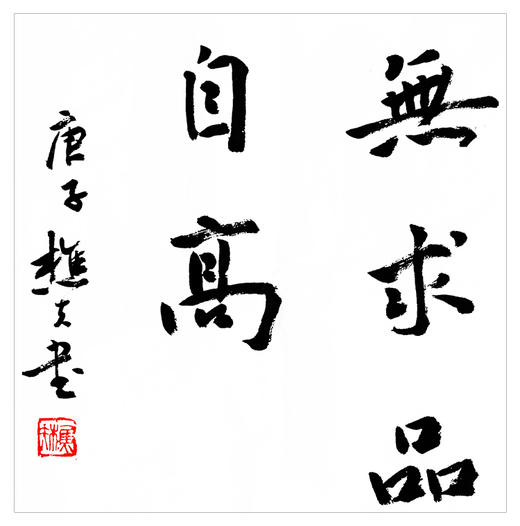 無求品
自高
庚子樵夫書